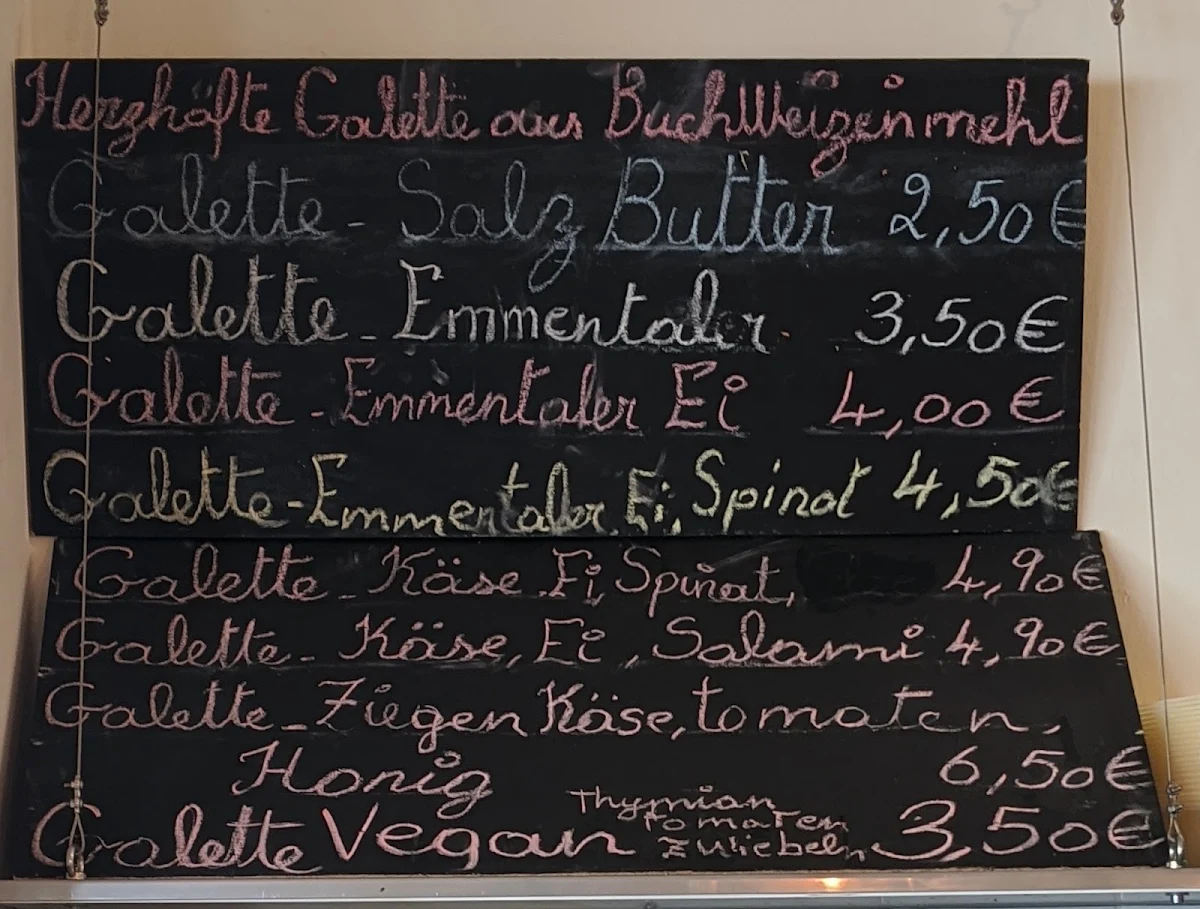 Herzhafte Galette aus BuchWeizenmehl
Galette - Salz Butter 2,50€
Galette - Emmentaler 3,50€
Galette - Emmentaler Ei 4,00€
Galette - Emmentaler Ei, Spinat 4,50€
Galette - Käse Ei, Spinat, 4,90€
Galette - Käse, Ei, Salami 4,90€
Galette - Ziegen Käse, tomaten,
Honig 6,50€
Thymian
Galette Vegan tomaten 3,50€
Zwiebeln